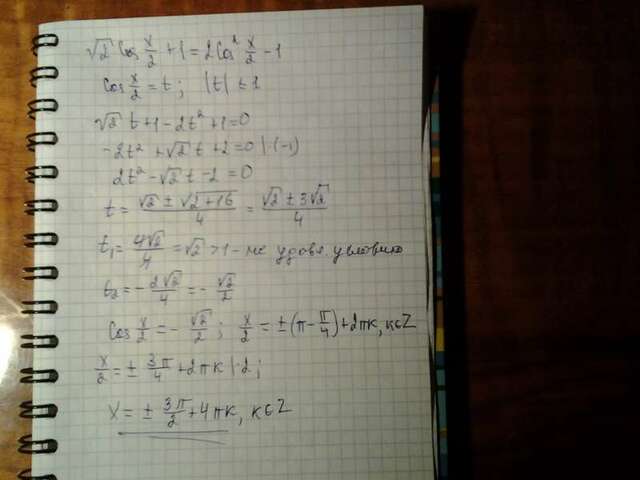 √2 Cos x/2 + 1 = 2Cos² x/2 - 1
Cos x/2 = t; |t| ≤ 1
√2 t + 1 - 2t² + 1 = 0
-2t² + √2 t + 2 = 0 | ·(-1)
2t² - √2 t - 2 = 0
t = (√2 ± √(2+16))/4 = (√2 ± 3√2)/4
t₁ = 4√2/4 = √2 > 1 - не удовл. условию
t₂ = -2√2/4 = -√2/2
Cos x/2 = -√2/2; x/2 = ±(π - π/4) + 2πк, к∈Z
x/2 = ± 3π/4 + 2πк | ·2;
X = ± 3π/2 + 4πк, к∈Z